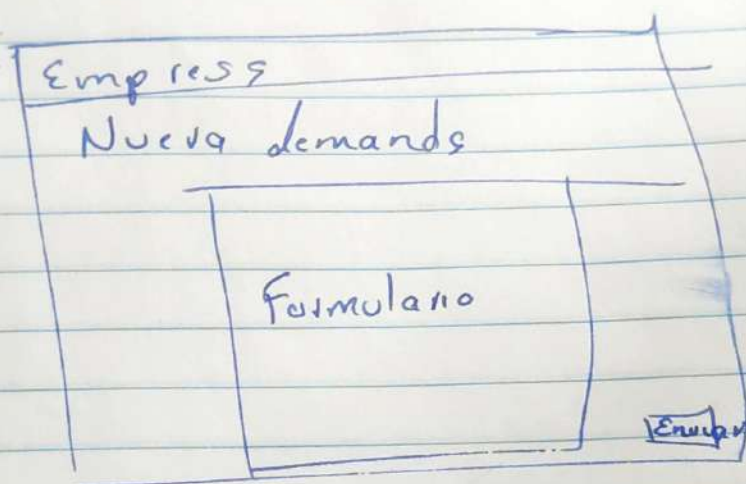 Empresa
Nueva demanda
Formulario
Enviar